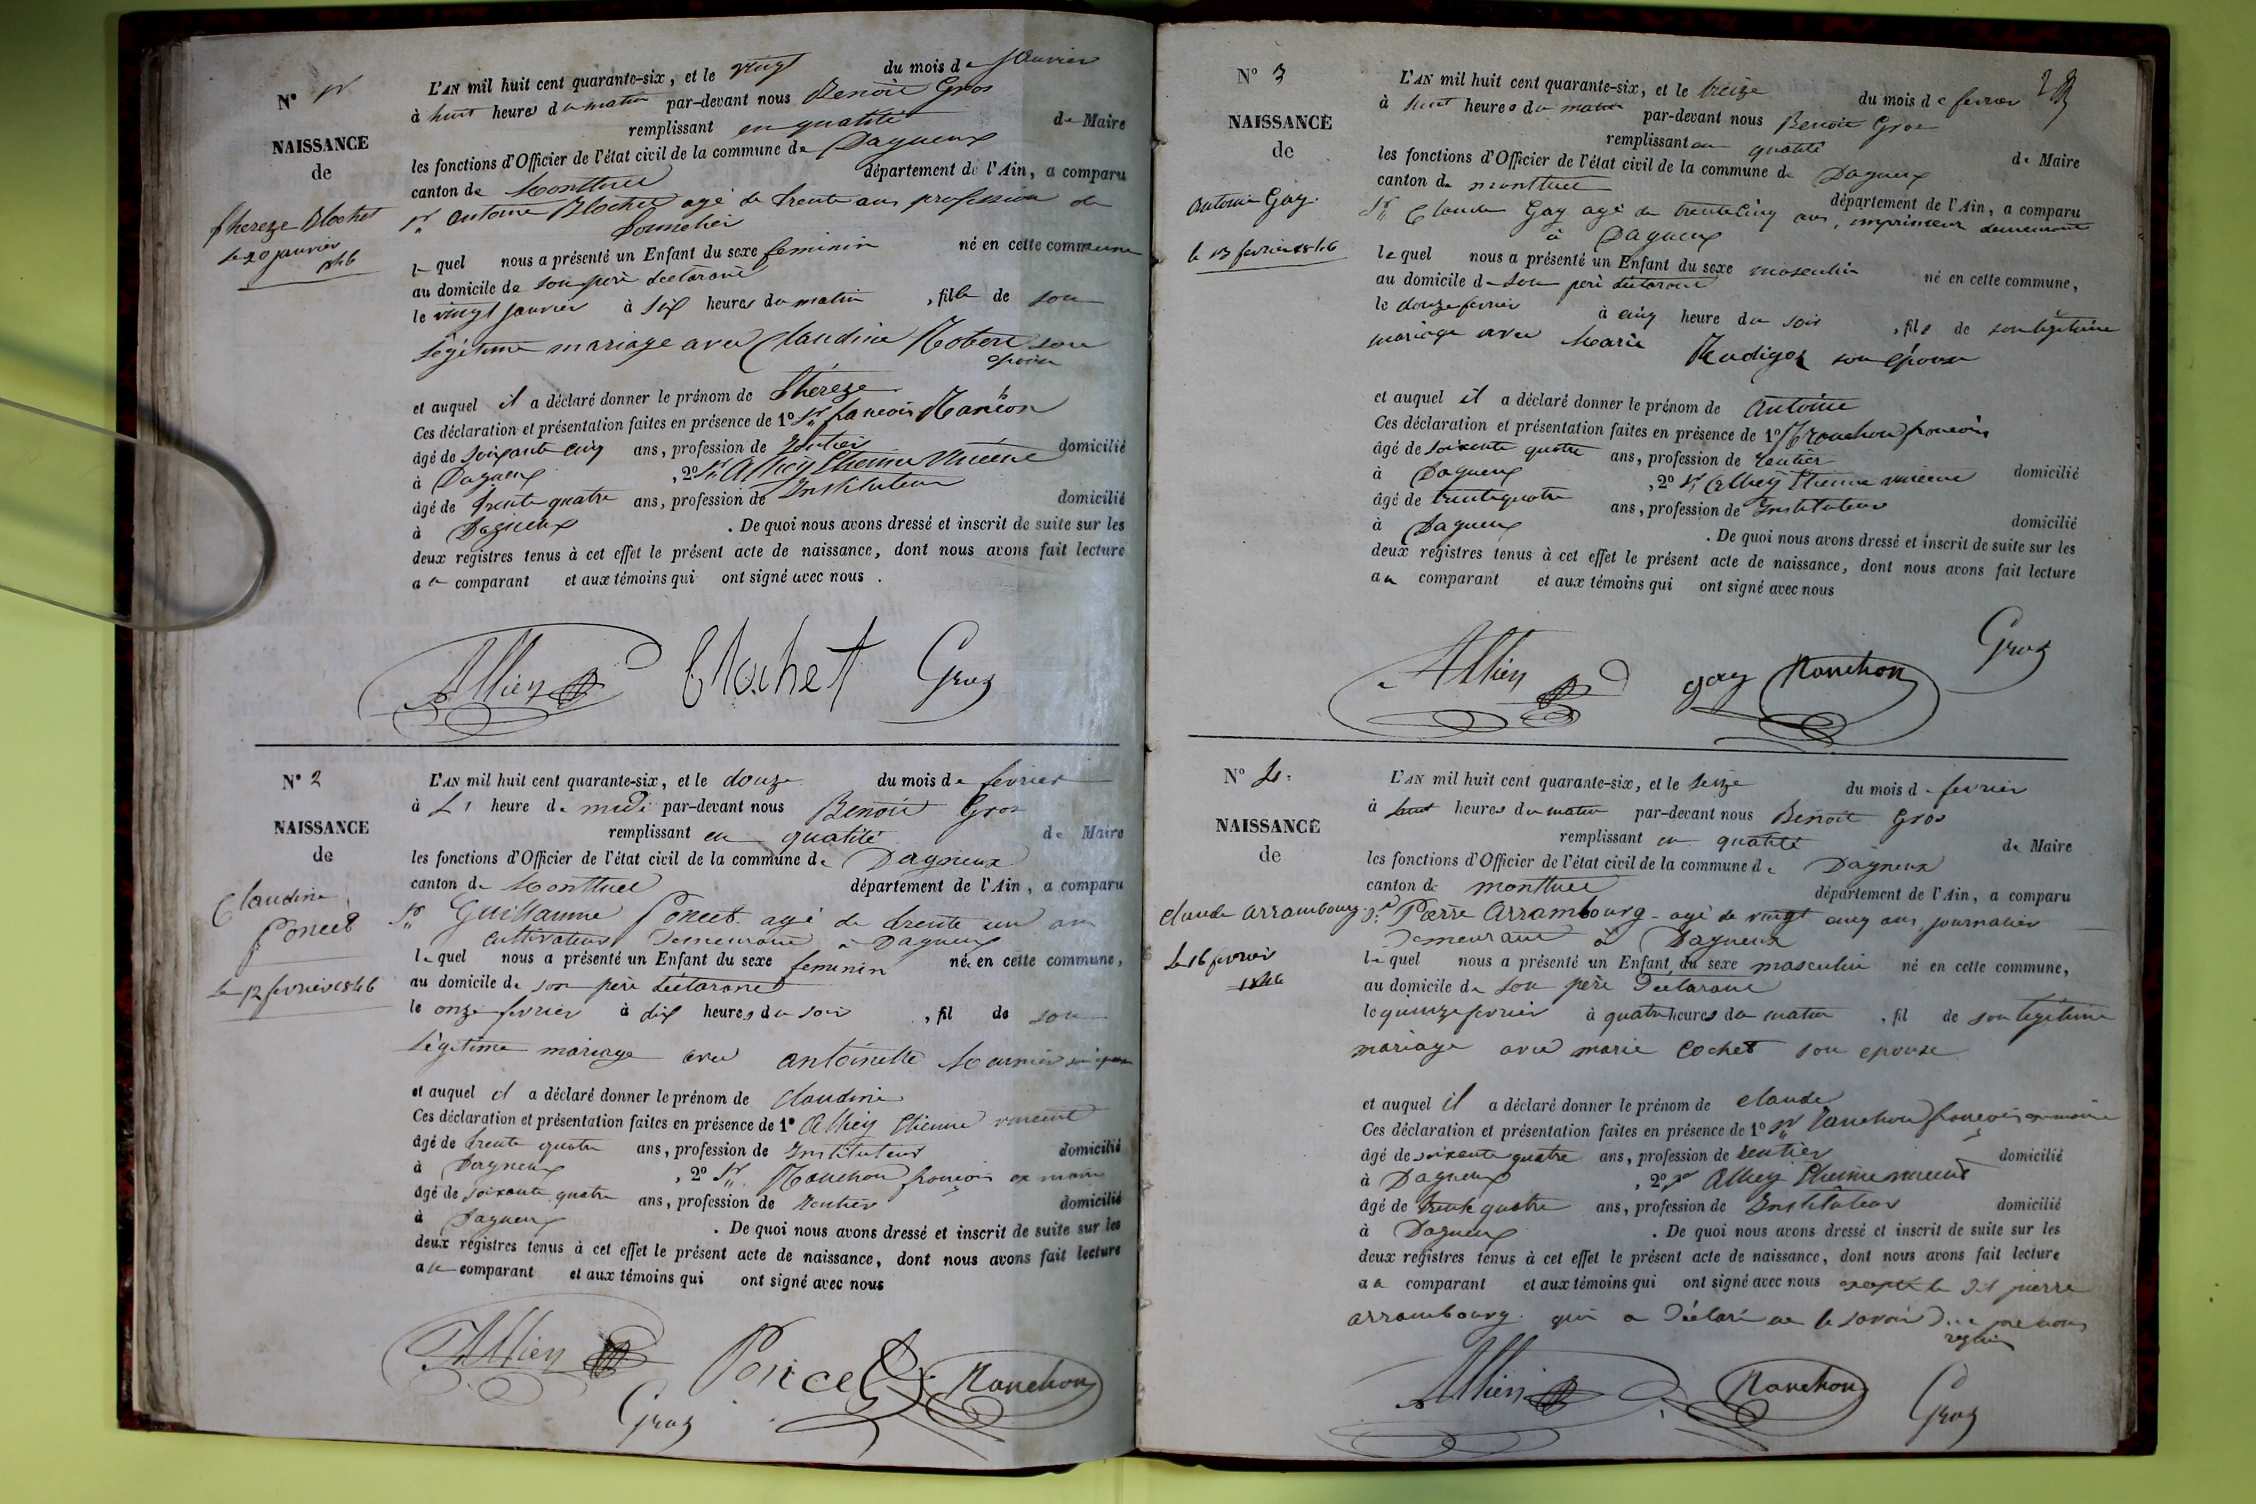 N° 1er
NAISSANCE
de
Thereze Blochet
le 20 janvier
1846
L'AN mil huit cent quarante-six, et le vingt du mois de janvier
à huit heures du matin par-devant nous Benoit Gros
remplissant en qualité de Maire
les fonctions d'Officier de l'état civil de la commune de Dagneux
canton de Montluel département de l'Ain, a comparu
Sr antoine Blochet agé de trente ans profession de
le quel nous a présenté un Enfant du sexe feminin né en cette commune
au domicile de son père déclarant
le vingt janvier à six heures du matin, fille de son
légitime mariage avec Claudine Robert son
épouse
et auquel il a déclaré donner le prénom de Thérèze
Ces déclaration et présentation faites en présence de 1° Sr francois
âgé de soixante cinq ans, profession de rentier domicilié
à Dagneux, 2° Sr Alhiey Etienne Vincent
âgé de trente quatre ans, profession de Instituteur domicilié
à Dagneux. De quoi nous avons dressé et inscrit de suite sur les
deux registres tenus à cet effet le présent acte de naissance, dont nous avons fait lecture
au comparant et aux témoins qui ont signé avec nous.
Blochet Gros
N° 2
NAISSANCE
de
Claudine
Poncet
le 12 fevrier 1846
L'AN mil huit cent quarante-six, et le douze du mois de fevrier
à L' heure de midi par-devant nous Benoit Gros
remplissant en qualité de Maire
les fonctions d'Officier de l'état civil de la commune de Dagneux
canton de Montluel département de l'Ain, a comparu
Sr Guillaume Poncet agé de trente un ans
cultivateur demeurant à Dagneux
le quel nous a présenté un Enfant du sexe feminin née en cette commune,
au domicile de son père déclarant
le onze fevrier à dix heures du soir, fil de son
légitime mariage avec antoinette son épouse
et auquel il a déclaré donner le prénom de claudine
Ces déclaration et présentation faites en présence de 1° Alhiey Etienne vincent
âgé de trente quatre ans, profession de Instituteur domicilié
à Dagneux, 2° Sr Ranchon francois ex maire
âgé de soixante quatre ans, profession de rentier domicilié
à Dagneux. De quoi nous avons dressé et inscrit de suite sur les
deux registres tenus à cet effet le présent acte de naissance, dont nous avons fait lecture
au comparant et aux témoins qui ont signé avec nous
Poncet Ranchon
Gros
N° 3
NAISSANCE
de
Antoine Gay
le 13 fevrier 1846
L'AN mil huit cent quarante-six, et le treize du mois de fevrier
à huit heures du matin par-devant nous Benoit Gros
remplissant en qualité de Maire
les fonctions d'Officier de l'état civil de la commune de Dagneux
canton de montluel département de l'Ain, a comparu
Sr Claude Gay agé de trente cinq ans, imprimeur demeurant
à Dagneux
le quel nous a présenté un Enfant du sexe masculin né en cette commune,
au domicile de son père déclarant
le douze fevrier à cinq heure du soir, fils de son légitime
mariage avec Marie son épouse
et auquel il a déclaré donner le prénom de Antoine
Ces déclaration et présentation faites en présence de 1° Ranchon francois
âgé de soixante quatre ans, profession de rentier domicilié
à Dagneux, 2° Sr Alhiey Etienne vincent
âgé de trente quatre ans, profession de Instituteur domicilié
à Dagneux. De quoi nous avons dressé et inscrit de suite sur les
deux registres tenus à cet effet le présent acte de naissance, dont nous avons fait lecture
au comparant et aux témoins qui ont signé avec nous
gay Ranchon Gros
N° 4.
NAISSANCE
de
claude arrambourg
Le 16 fevrier
1846
L'AN mil huit cent quarante-six, et le seize du mois de fevrier
à huit heures du matin par-devant nous Benoit Gros
remplissant en qualité de Maire
les fonctions d'Officier de l'état civil de la commune de Dagneux
canton de montluel département de l'Ain, a comparu
Sr Pierre Arrambourg agé de vingt cinq ans, journalier
demeurant à Dagneux
le quel nous a présenté un Enfant du sexe masculin né en cette commune,
au domicile de son père déclarant
le quinze fevrier à quatre heures du matin, fil de son légitime
mariage avec marie cochet son epouse
et auquel il a déclaré donner le prénom de claude
Ces déclaration et présentation faites en présence de 1° Sr Ranchon francois ex-maire
âgé de soixante quatre ans, profession de rentier domicilié
à Dagneux, 2° Sr Alhiey Etienne vincent
âgé de trente quatre ans, profession de Instituteur domicilié
à Dagneux. De quoi nous avons dressé et inscrit de suite sur les
deux registres tenus à cet effet le présent acte de naissance, dont nous avons fait lecture
au comparant et aux témoins qui ont signé avec nous excepté le dit pierre
arrambourg qui a déclaré ne le savoir
Ranchon Gros